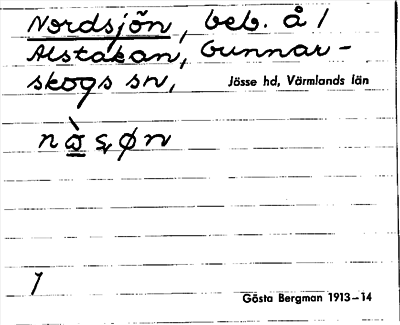 Nordsjön, beb. å /
Alstakan, Gunnar-
skogs sn, Jösse hd, Värmlands län
1
Gösta Bergman 1913–14